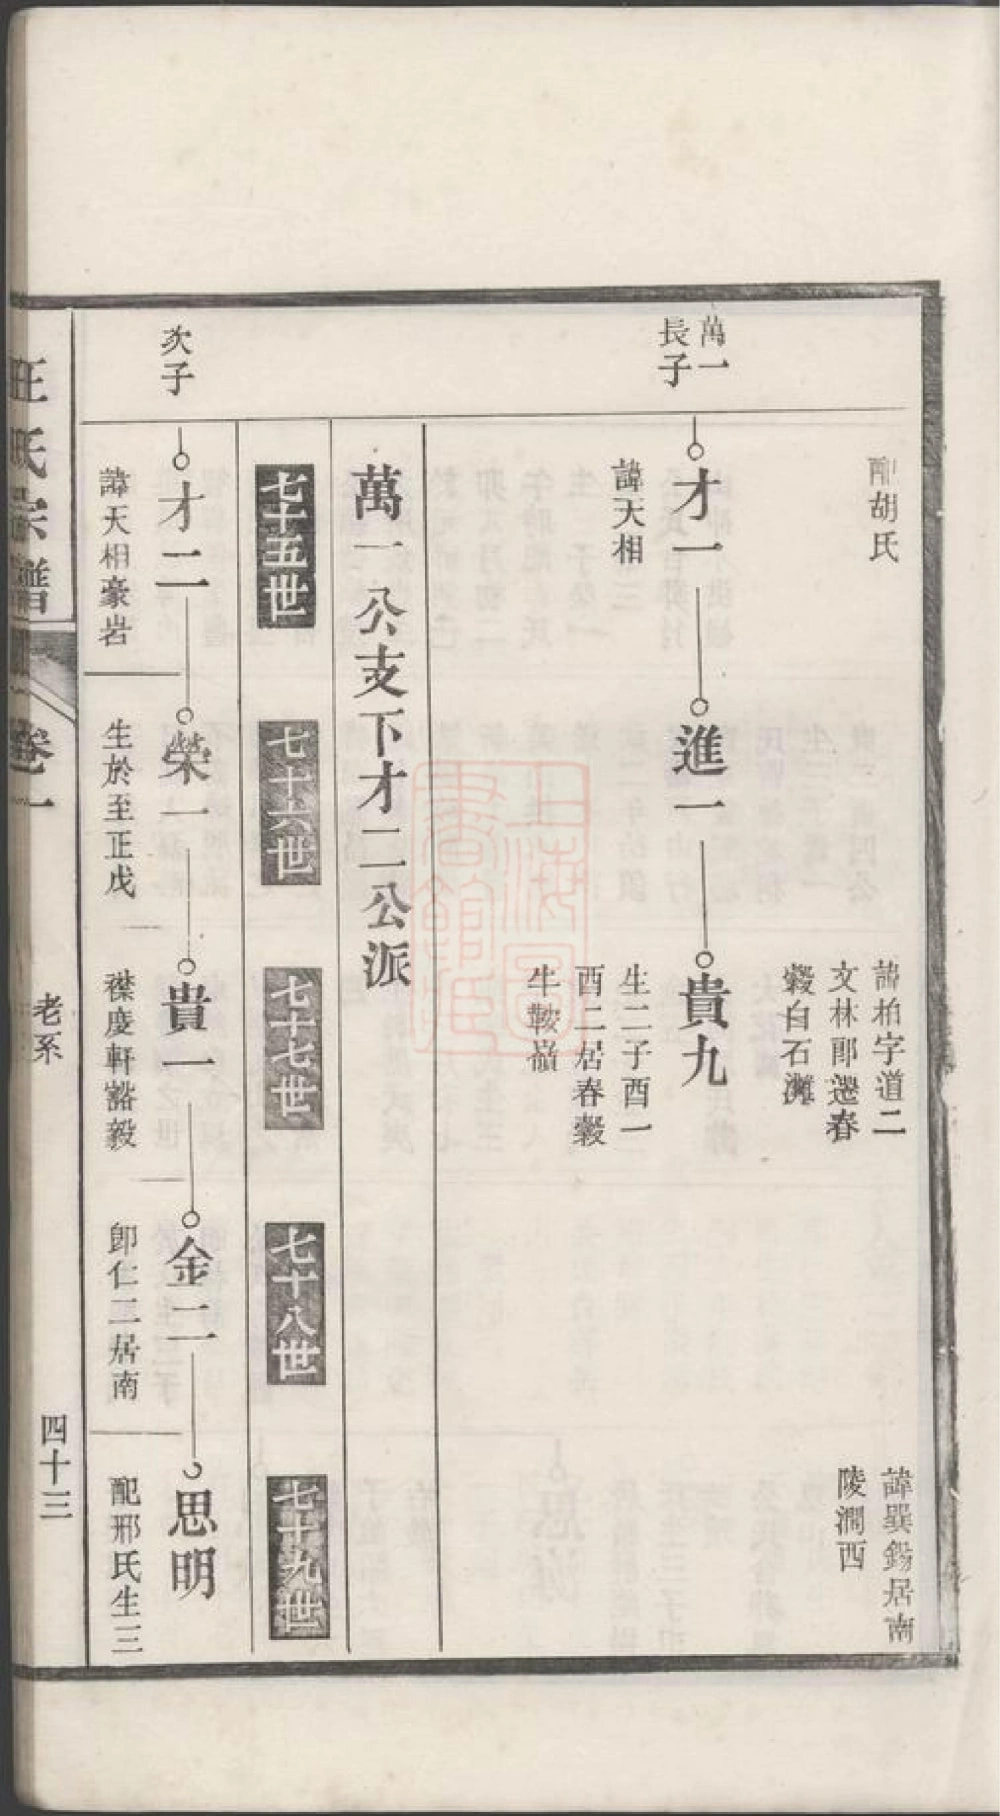 配胡氏
諱柏字道二
文林郎遷春
穀白石灘
諱巽錫居南
陵澗西
萬一
長子
才一
諱天相
進一
貴九
生二子酉一
酉二居春穀
牛鞍嶺
萬一公支下才二公派
七十五世
七十六世
七十七世
七十八世
七十九世
次子
才二
諱天相豪岩
榮一
生於至正戊
貴一
襟慶軒豁毅
金二
卽仁二居南
思明
配邢氏生三
汪氏宗譜
卷一
老系
四十三
上海圖書館藏